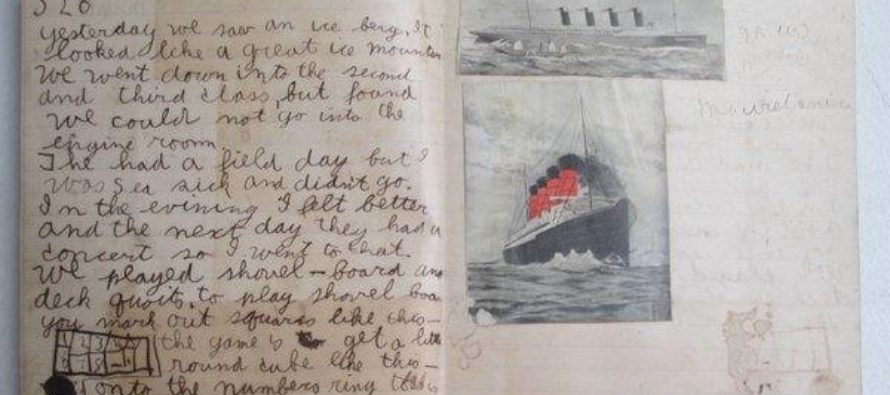 328
yesterday we saw an ice berg, It
looked like a great ice mountain
We went down into the second
and third class, but found
we could not go into the
engine room.
The had a field day but I
was sea sick and didnt go.
In the evening I felt better
and the next day they had a
concert so I went to that.
We played shovel-board and
deck quoits. to play shovel boa
you mark out squares like this-
1 2 3
the game is to get a litt
round cube like this-
onto the numbers ring this
Mauretania